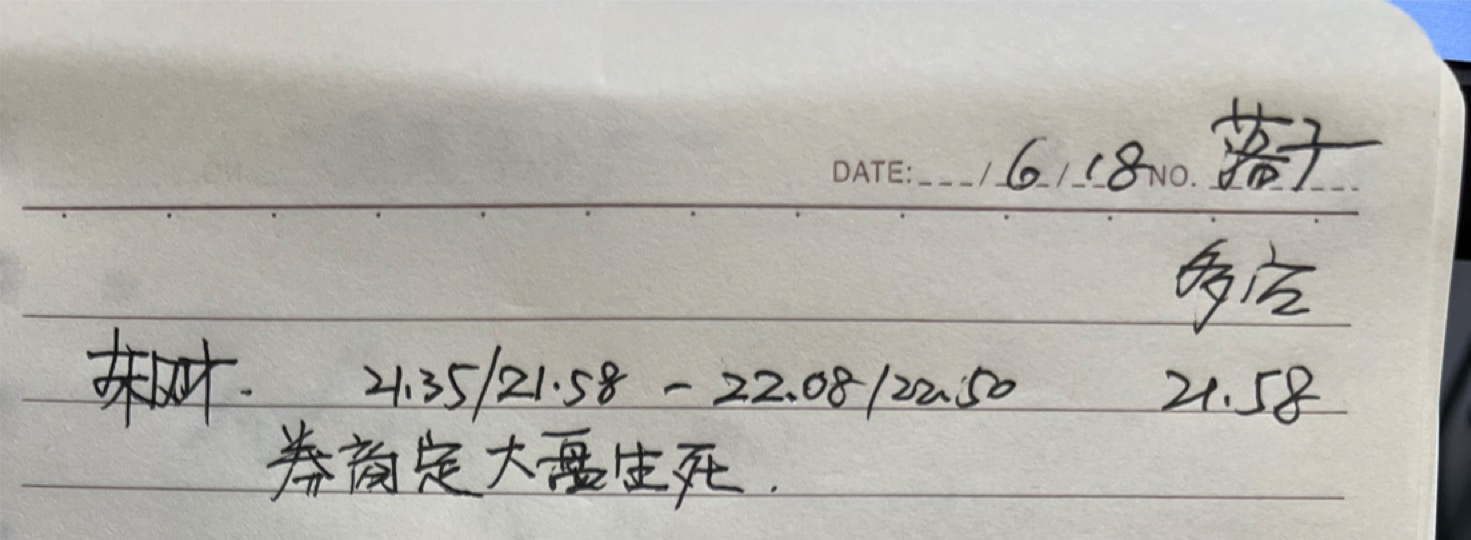 DATE: / 6 / 18 NO. 落子
多空
21.35/21.58 - 22.08/22.50 21.58
券商定大盘生死.